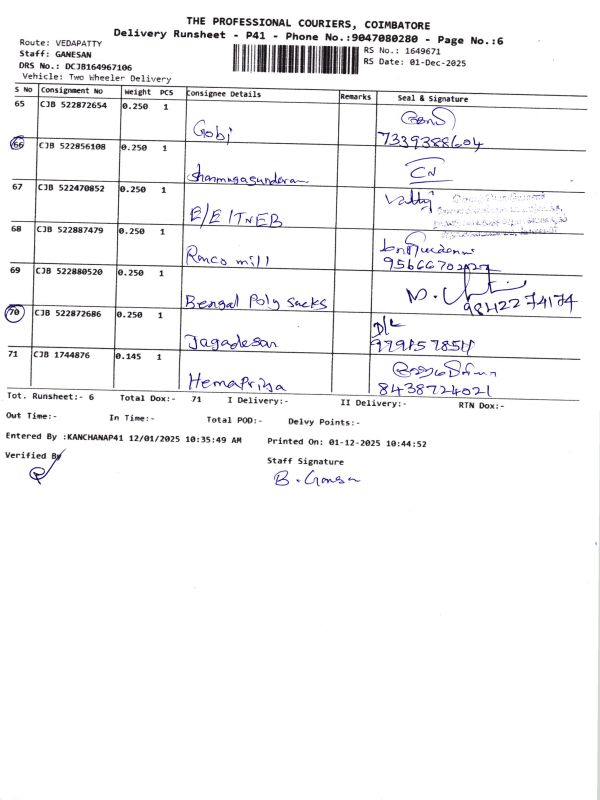 THE PROFESSIONAL COURIERS, COIMBATORE
Delivery Runsheet - P41 - Phone No.:9047080280 - Page No.:6
Route: VEDAPATTY
Staff: GANESAN
DRS No.: DCJB164967106
Vehicle: Two Wheeler Delivery
RS No.: 1649671
RS Date: 01-Dec-2025
S No Consignment No Weight PCS Consignee Details Remarks Seal & Signature
65 CJB 522872654 0.250 1
Gobi 7339388604
66 CJB 522856108 0.250 1
Shanmugasundaram CN
67 CJB 522470852 0.250 1
E/E ITNEB
68 CJB 522887479 0.250 1
Ranco mill
69 CJB 522880520 0.250 1
Bengal Poly sacks 9842274174
70 CJB 522872686 0.250 1 D/L
Jagadesan
71 CJB 1744876 0.145 1
HemaPriya 8438724021
Tot. Runsheet:- 6 Total Dox:- 71 I Delivery:- II Delivery:- RTN Dox:-
Out Time:- In Time:- Total POD:- Delvy Points:-
Entered By :KANCHANAP41 12/01/2025 10:35:49 AM Printed On: 01-12-2025 10:44:52
Verified By
Staff Signature